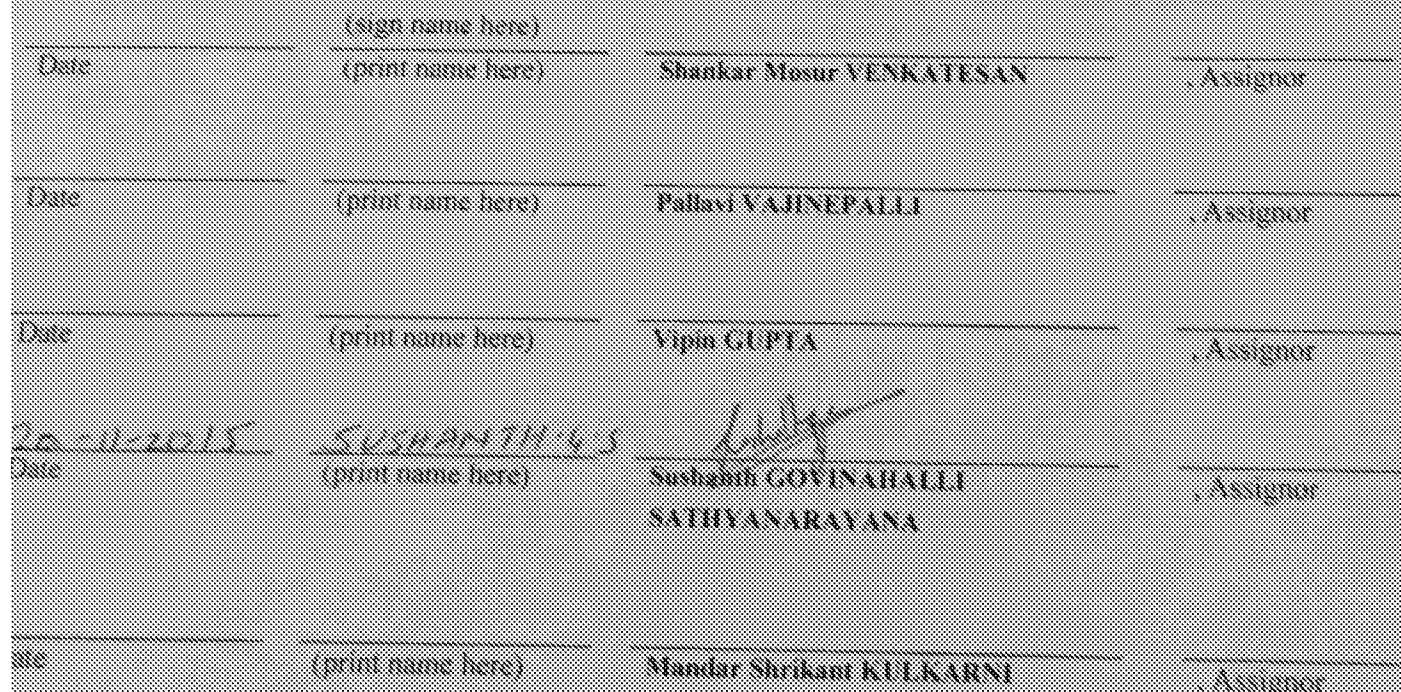 (sign name here)
Date (print name here) Shankar Mosur VENKATESAN , Assignor
Date (print name here) Pallavi VAJINEPALLI , Assignor
Date (print name here) Vipin GUPTA , Assignor
20-11-2015 SUSHANTH.G S
Date (print name here) Sushanth GOVINAHALLI , Assignor
SATHYANARAYANA
ate (print name here) Mandar Shrikant KULKARNI , Assignor